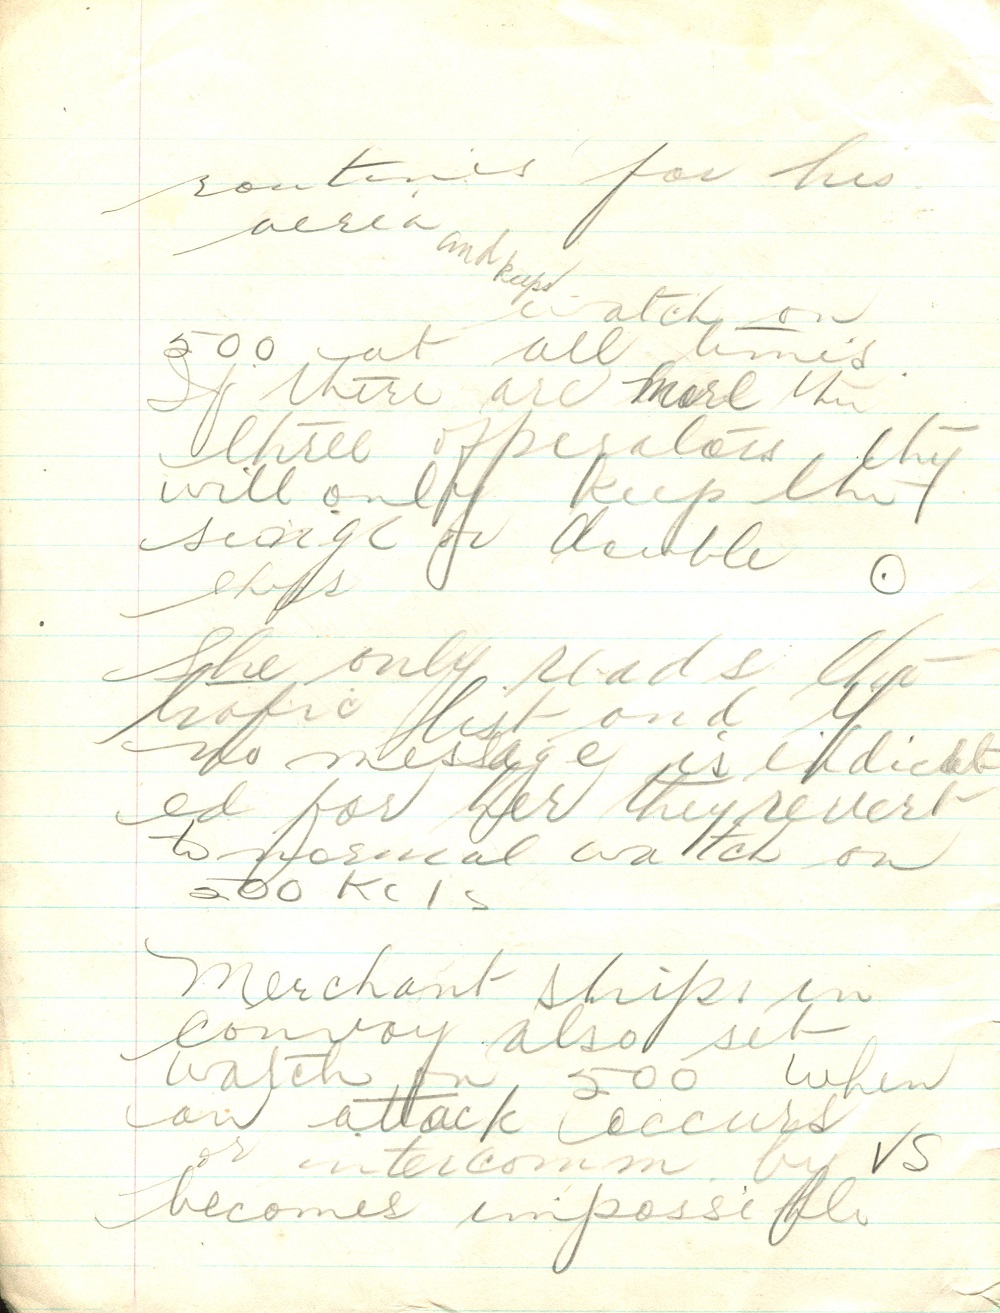 routines for his
aerea
and keeps
watch on
500 at all times
If there are more the
three opperators they
will only keep the
seingl or double
ships
She only reads the
trafic list and if
no message is indicat
ed for her they revert
to normal watch on
500 Kc/s
Merchant ships in
convoy also set
watch on 500 when
an attack occurs
or intercomm by VS
becomes impossible